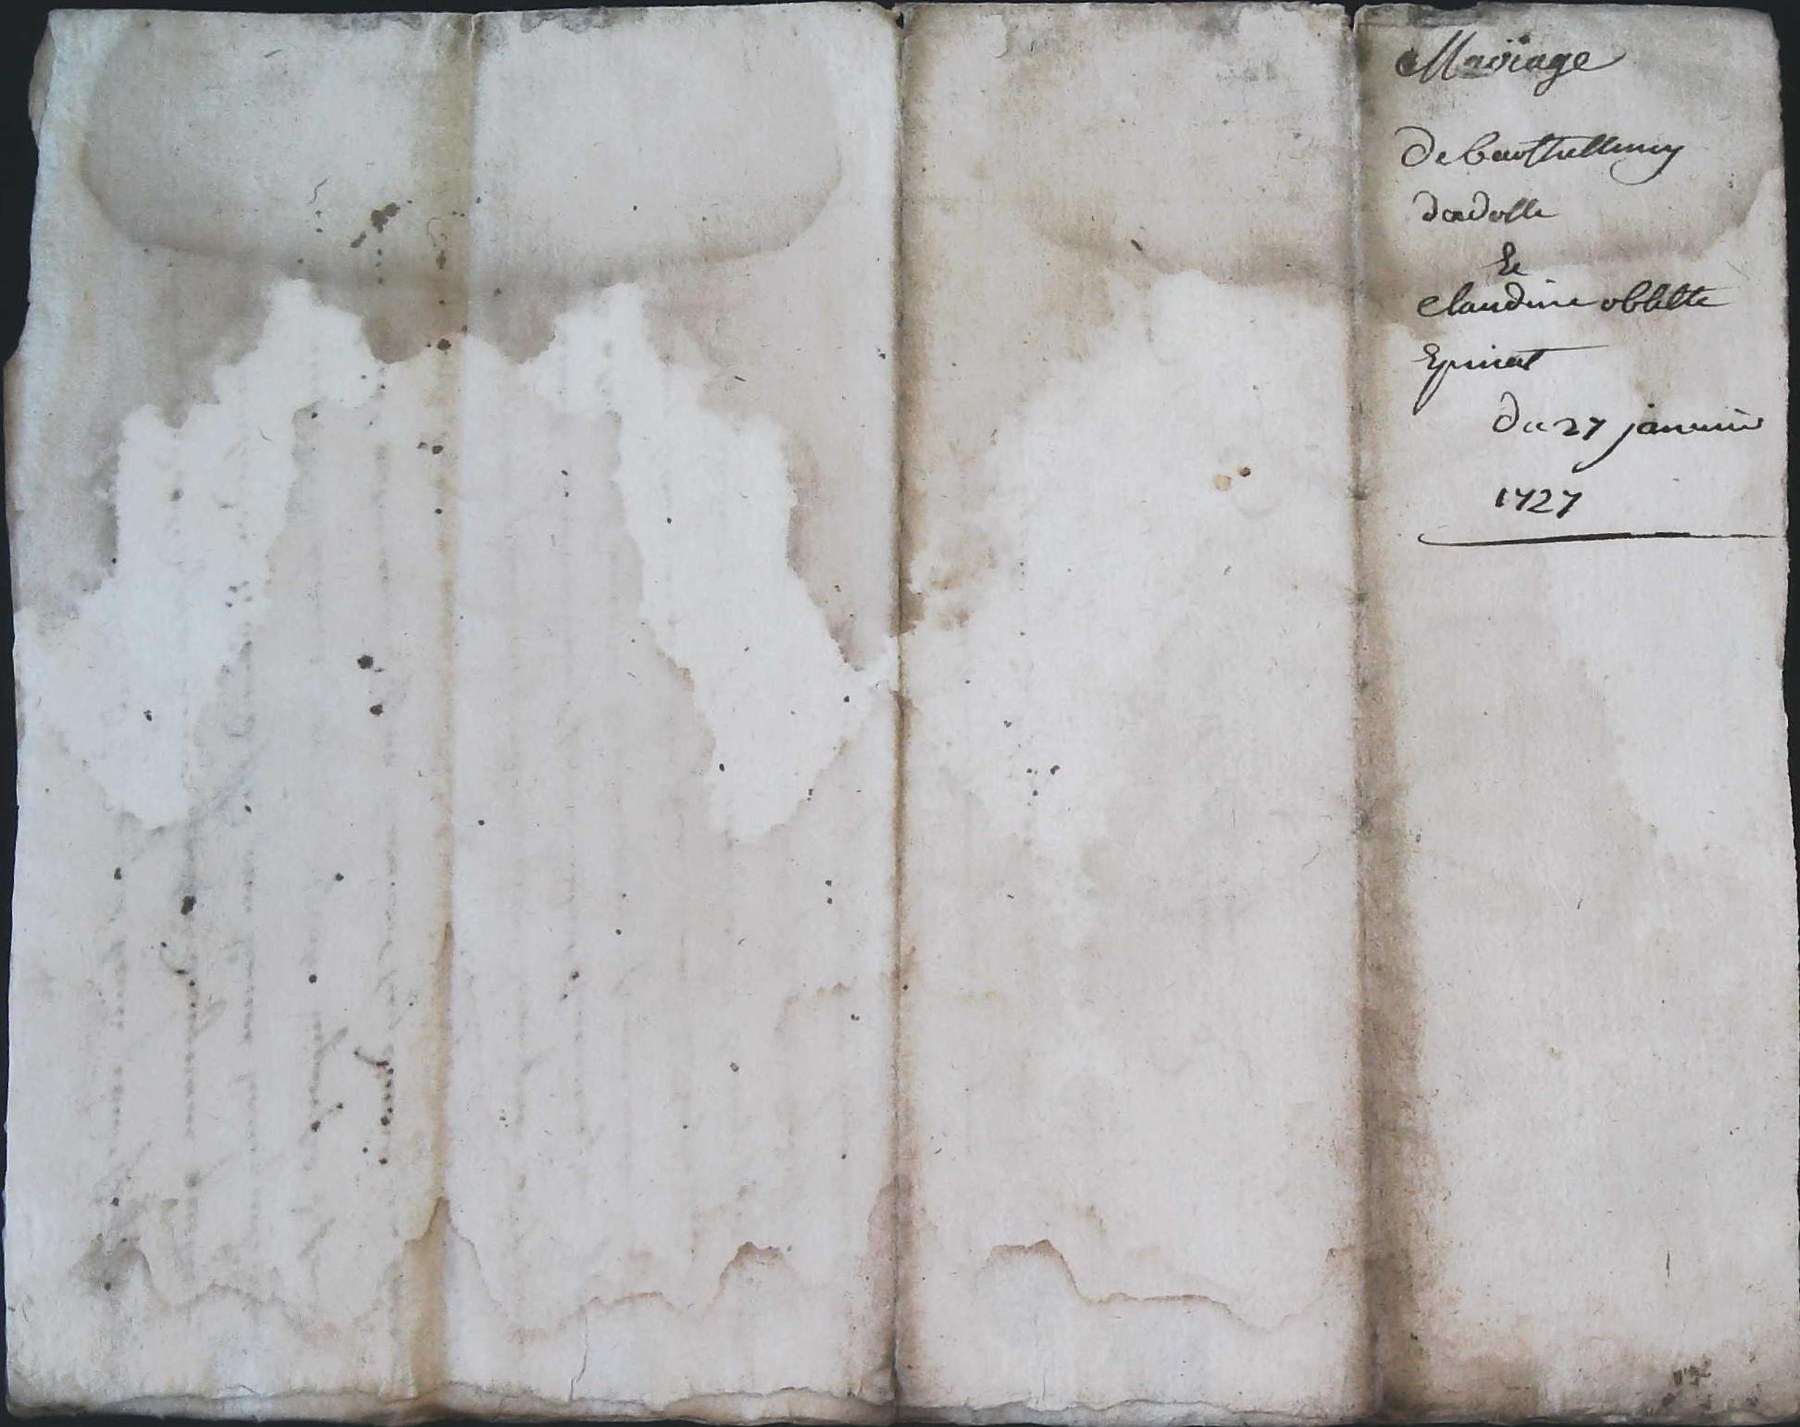 Mariage
De barthellemy
dadolle
Et
claudine obllette
Epinat
Du 27 janvier
1727